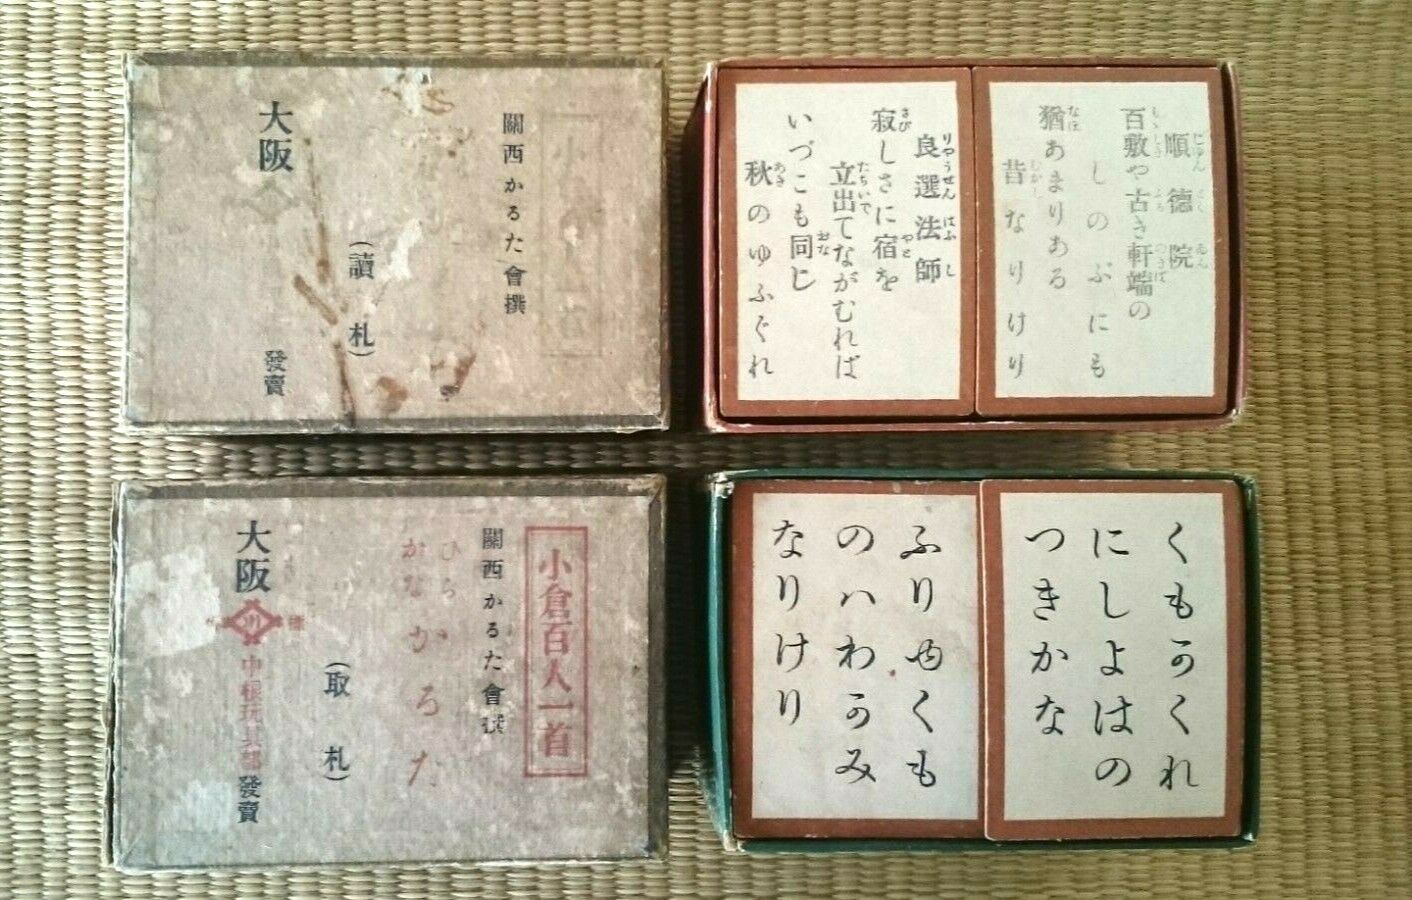 關西かるた會撰
(讀札)
大阪
發賣
順德院
百敷や古き軒端の
しのぶにも
猶あまりある
昔なりけり
良選法師
寂しさに宿を
立出てながむれば
いづこも同じ
秋のゆふぐれ
小倉百人一首
關西かるた會撰
ひら
がな
かるた
(取札)
大阪
中根玩具部
發賣
くもかくれ
にしよはの
つきかな
ふりゆくも
のハわかみ
なりけり